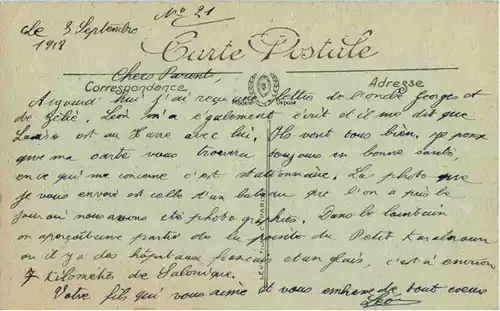 Le 3 Septembre N° 21
1918
Carte Postale
Chers Parents,
Correspondance Adresse
Aujourd'hui j'ai reçu une lettre de l'oncle Georges et
de Zélie. Léon m'a également écrit et il me dit que
est au Havre avec lui. Ils vont tous bien, je pense
que ma carte vous trouvera toujours en bonne santé,
en ce qui me concerne c'est stationnaire. La photo que
je vous envoie est celle d'un bateau que l'on a pris le
jour où nous avons été photographiés. Dans le lointain
on aperçoit une partie de la pointe du Petit Karabouroun
où il y a des hôpitaux français et anglais, c'est à environ
7 kilomètres de Salonique.
Votre fils qui vous aime et vous embrasse de tout coeur
Léon